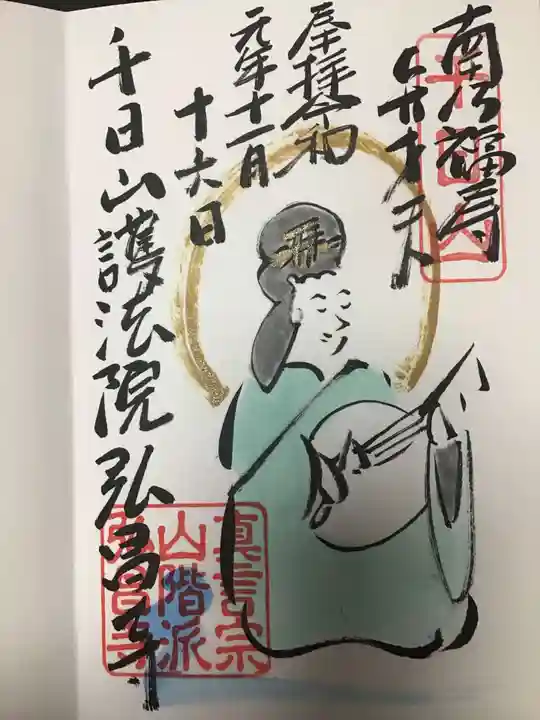 南無福寿
弁才天
奉拝令和
元年十一月
十六日
千日山護法院弘昌寺
千日山
真言宗
山階派
弘昌寺